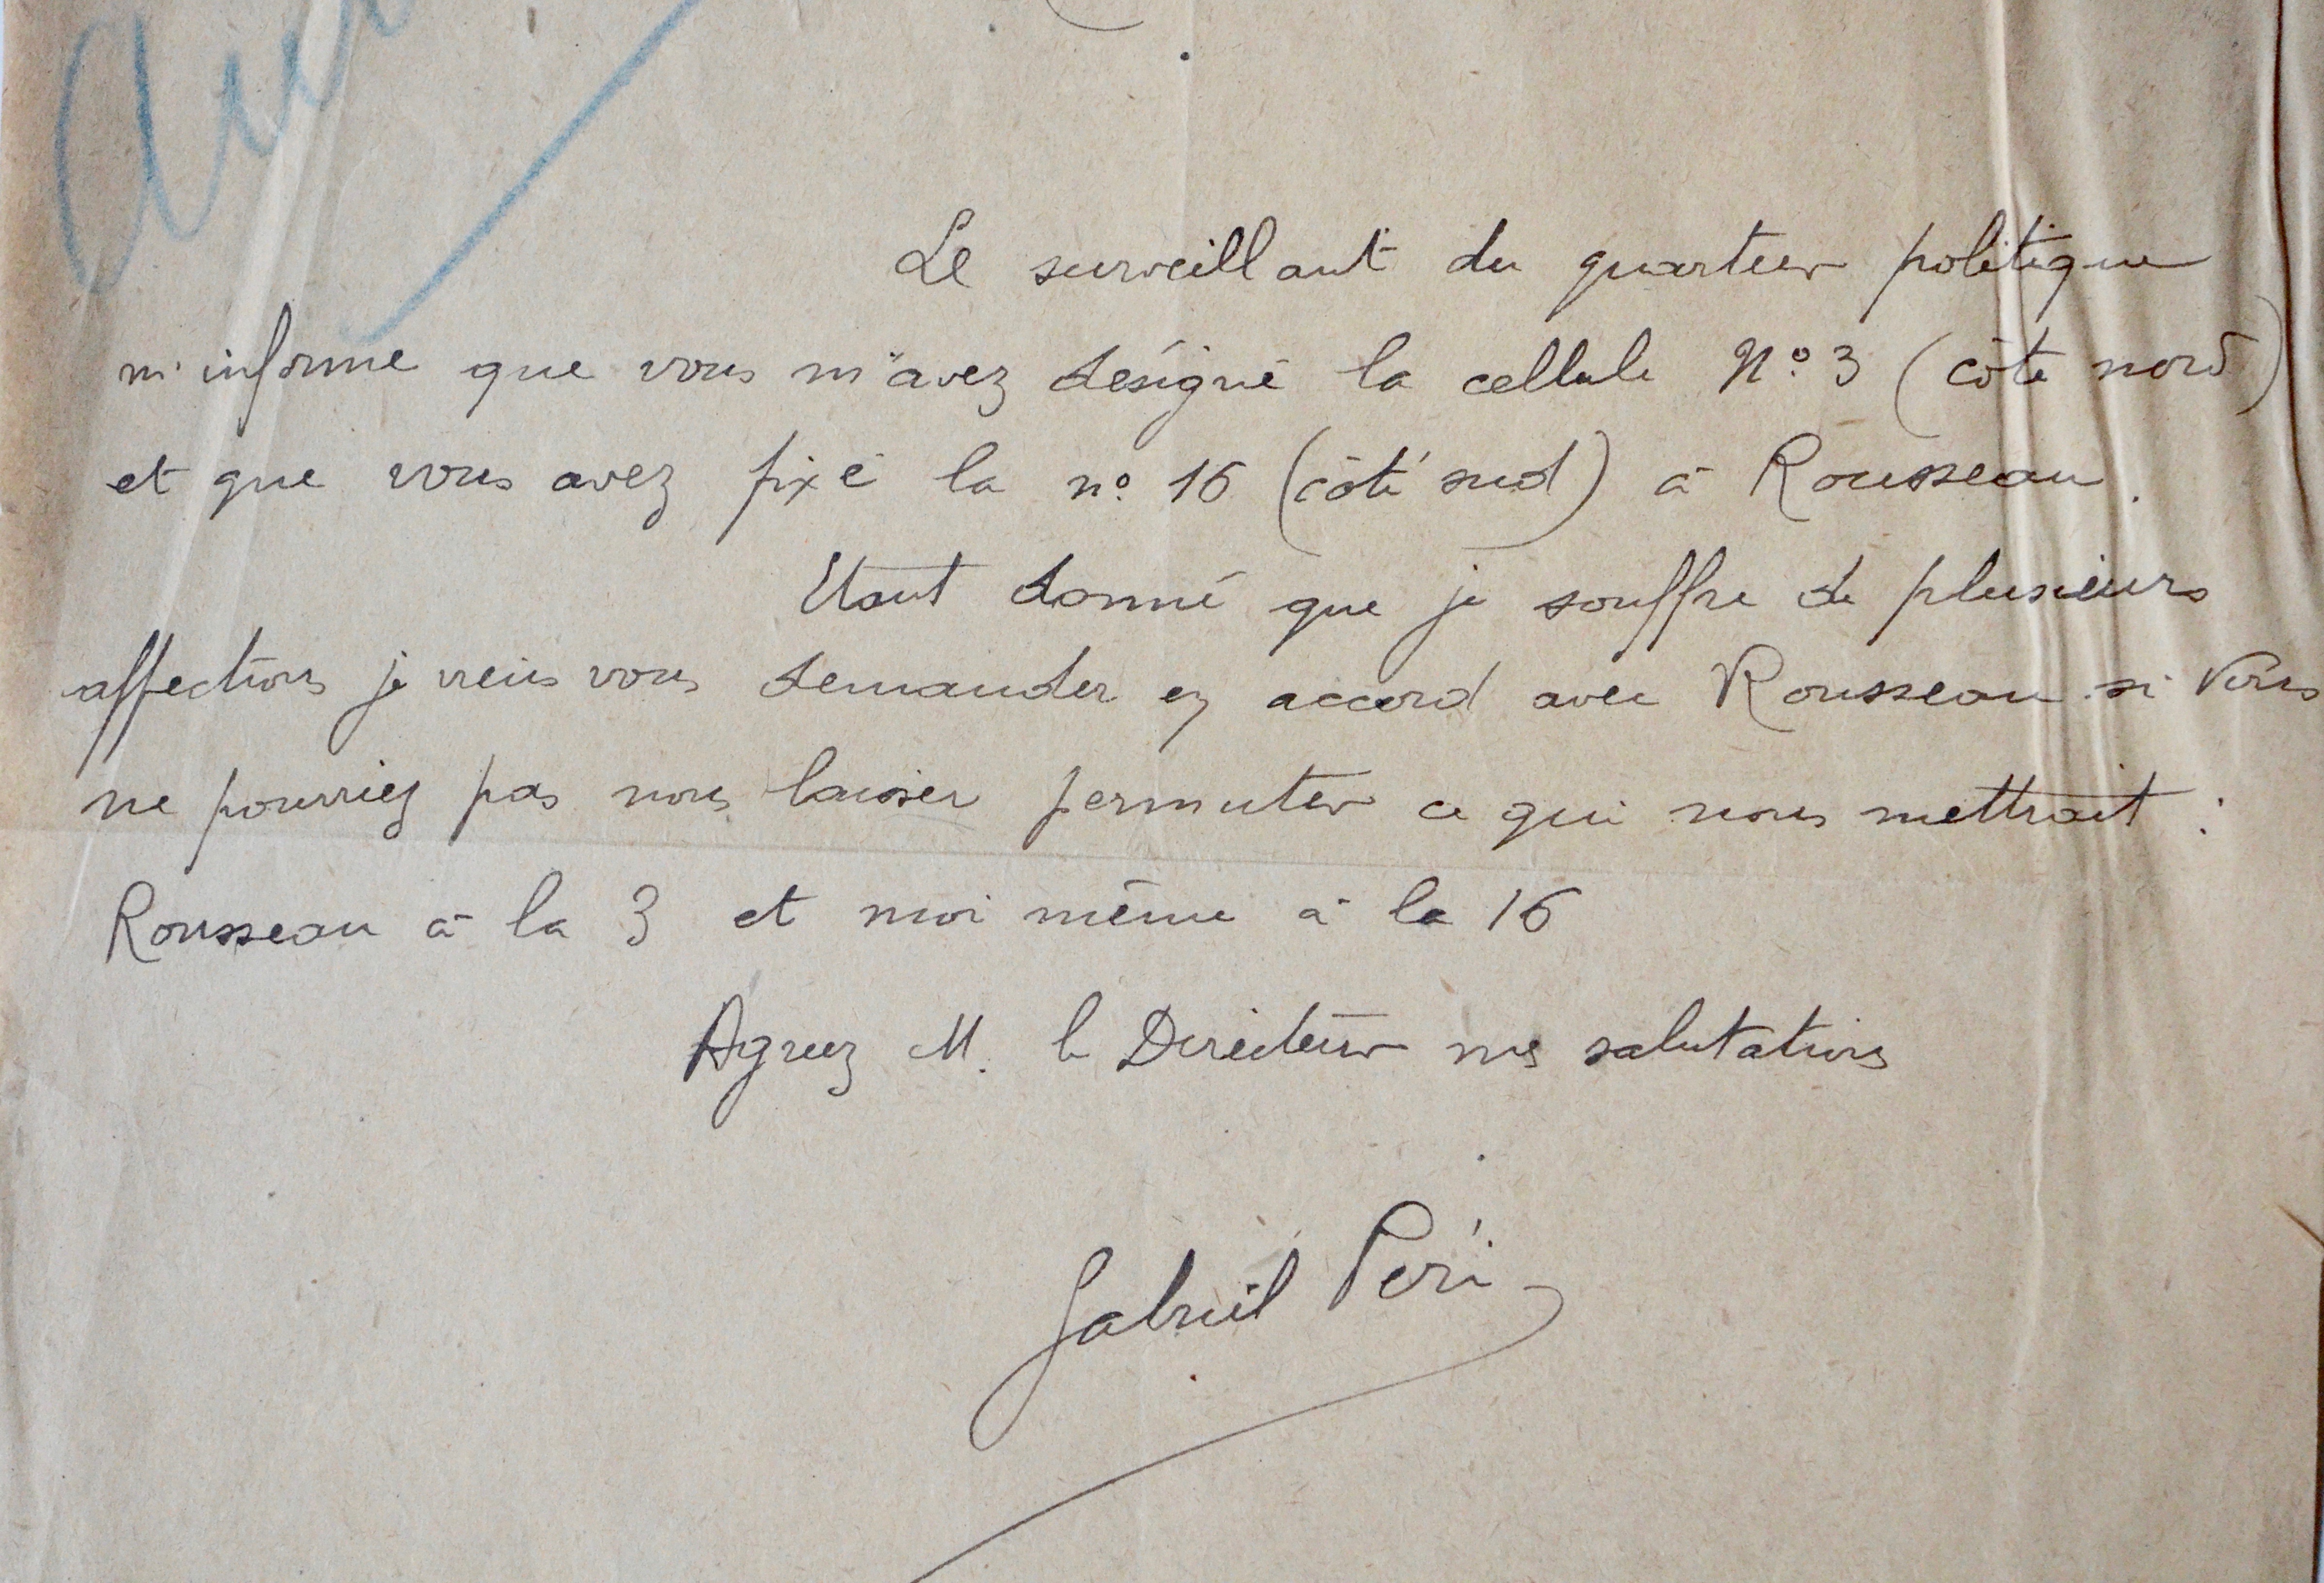 Le surveillant du quartier politique
m'informe que vous m'avez désigné la cellule N° 3 (côté nord)
et que vous avez fixé la n° 16 (côté sud) à Rousseau.
Etant donné que je souffre de plusieurs
affections je viens vous demander en accord avec Rousseau si vous
ne pourriez pas nous laisser permuter ce qui nous mettrait :
Rousseau à la 3 et moi même à la 16
Agréez M. le Directeur mes salutations
Gabriel Péri